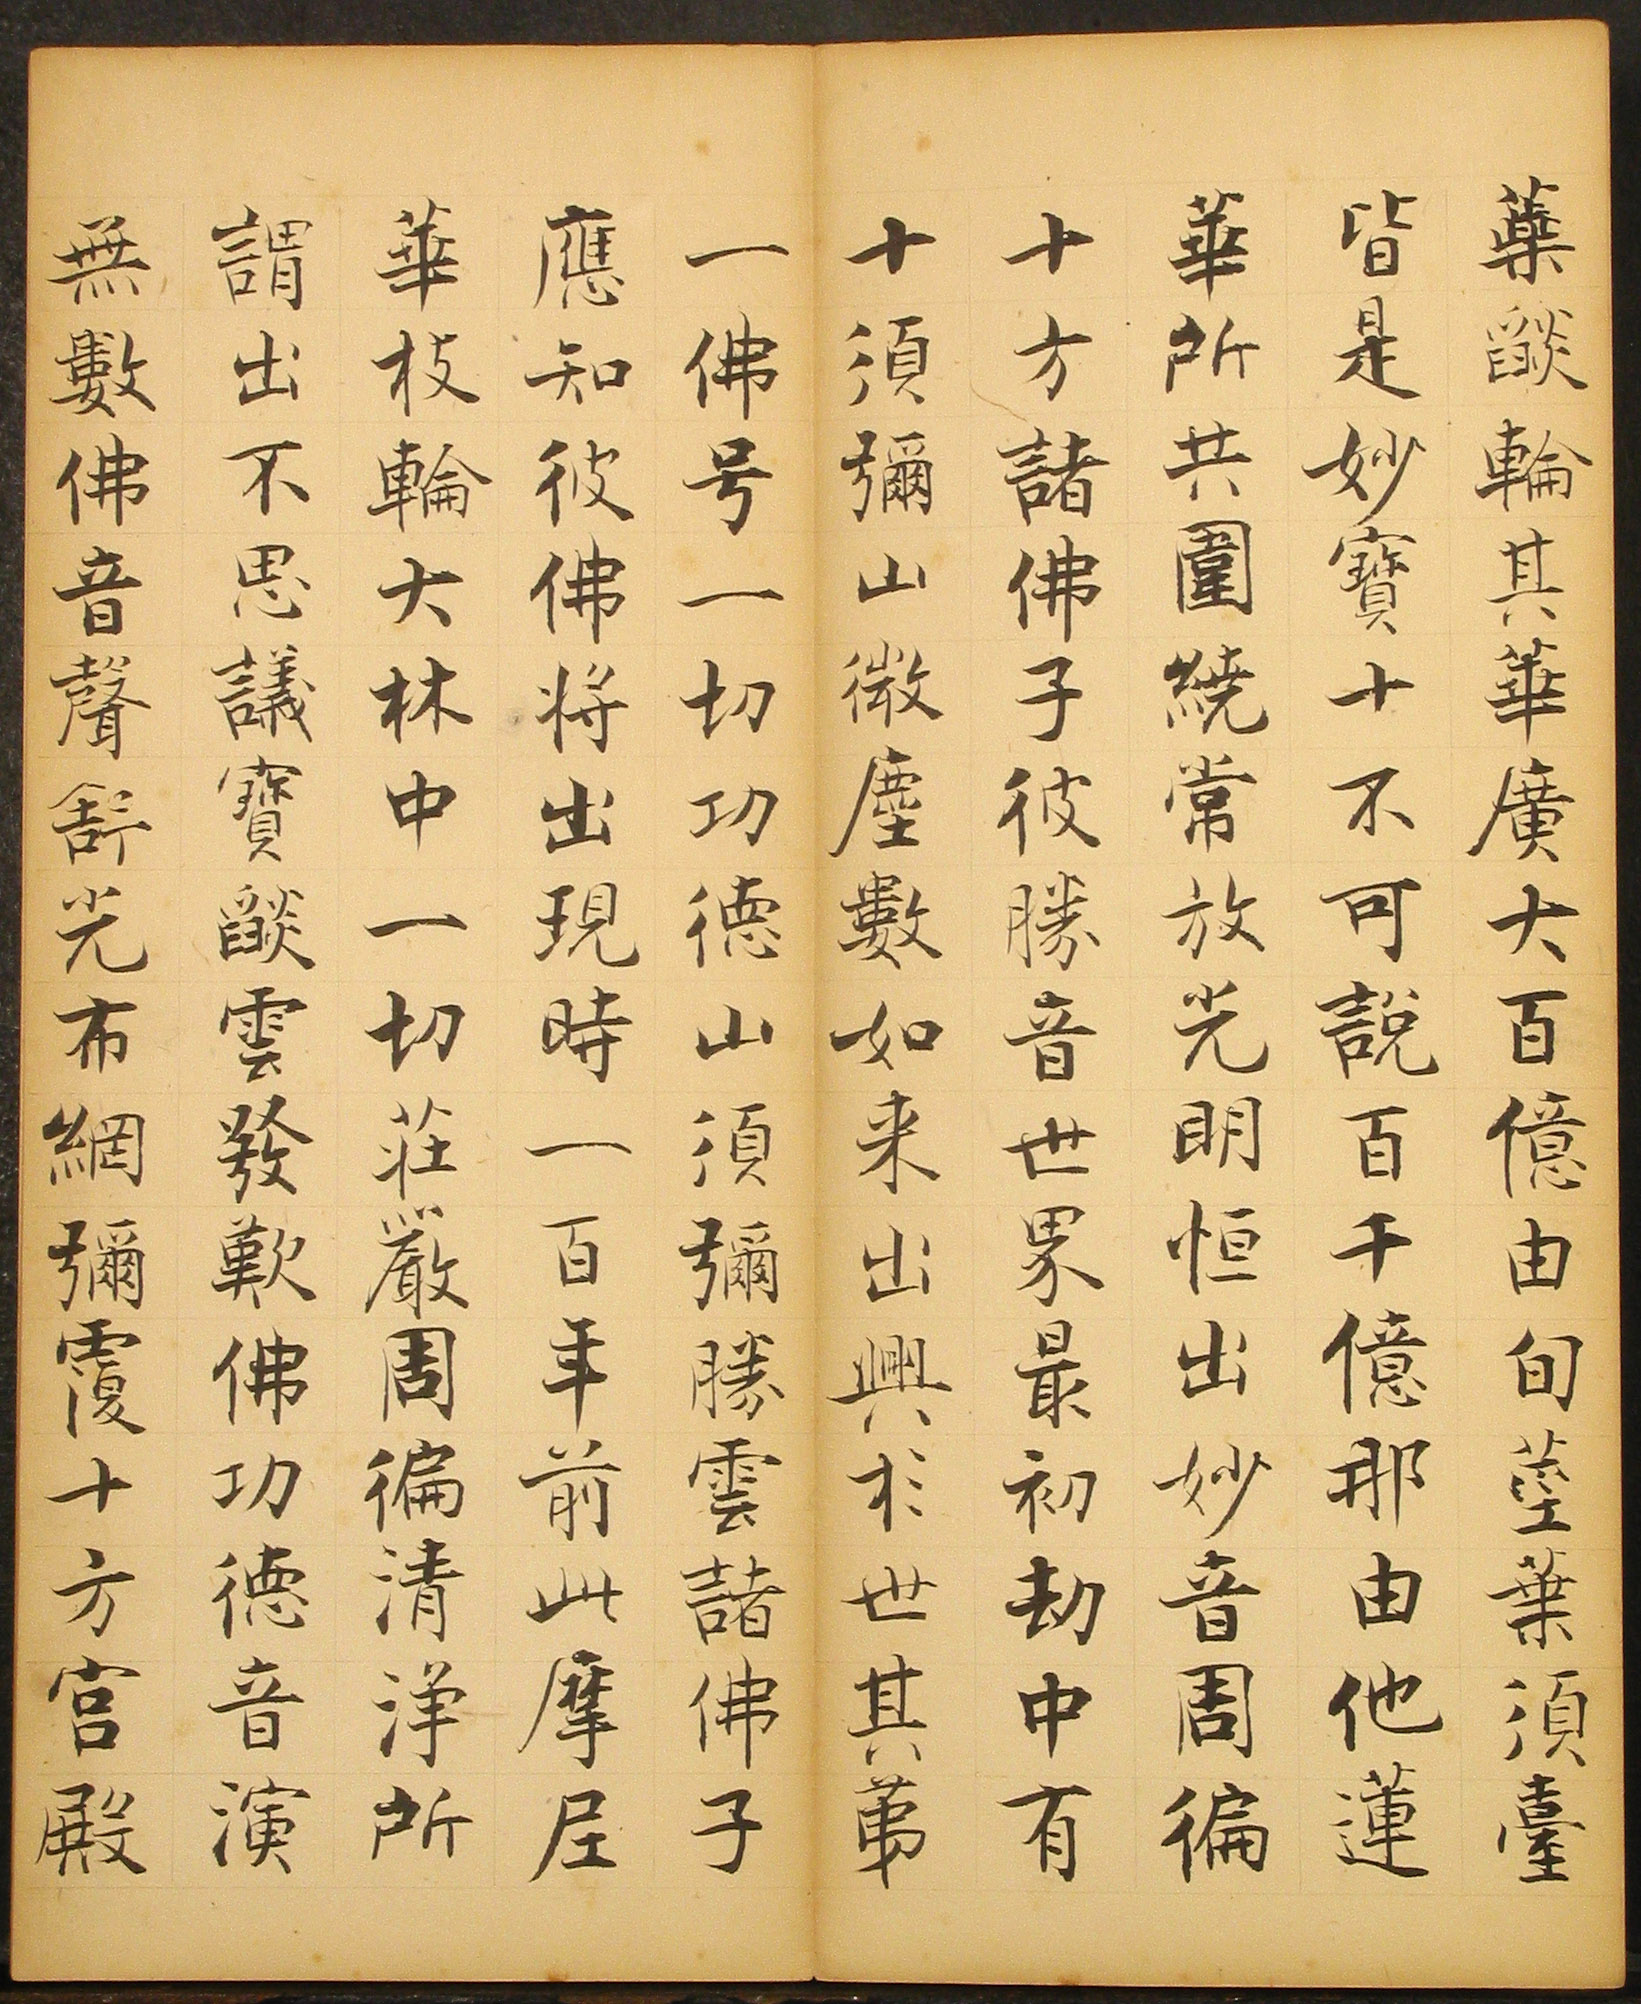 蘂燄輪其華廣大百億由旬莖葉須臺
皆是妙寶十不可說百千億那由他蓮
華所共圍繞常放光明恒出妙音周徧
十方諸佛子彼勝音世界最初劫中有
十須彌山微塵數如来出興於世其苐
一佛号一切功德山須彌勝雲諸佛子
應知彼佛將出現時一百年前此摩尼
華枝輪大林中一切莊嚴周徧清淨所
謂出不思議寶燄雲發歎佛功德音演
無數佛音聲舒光布網彌覆十方宮殿